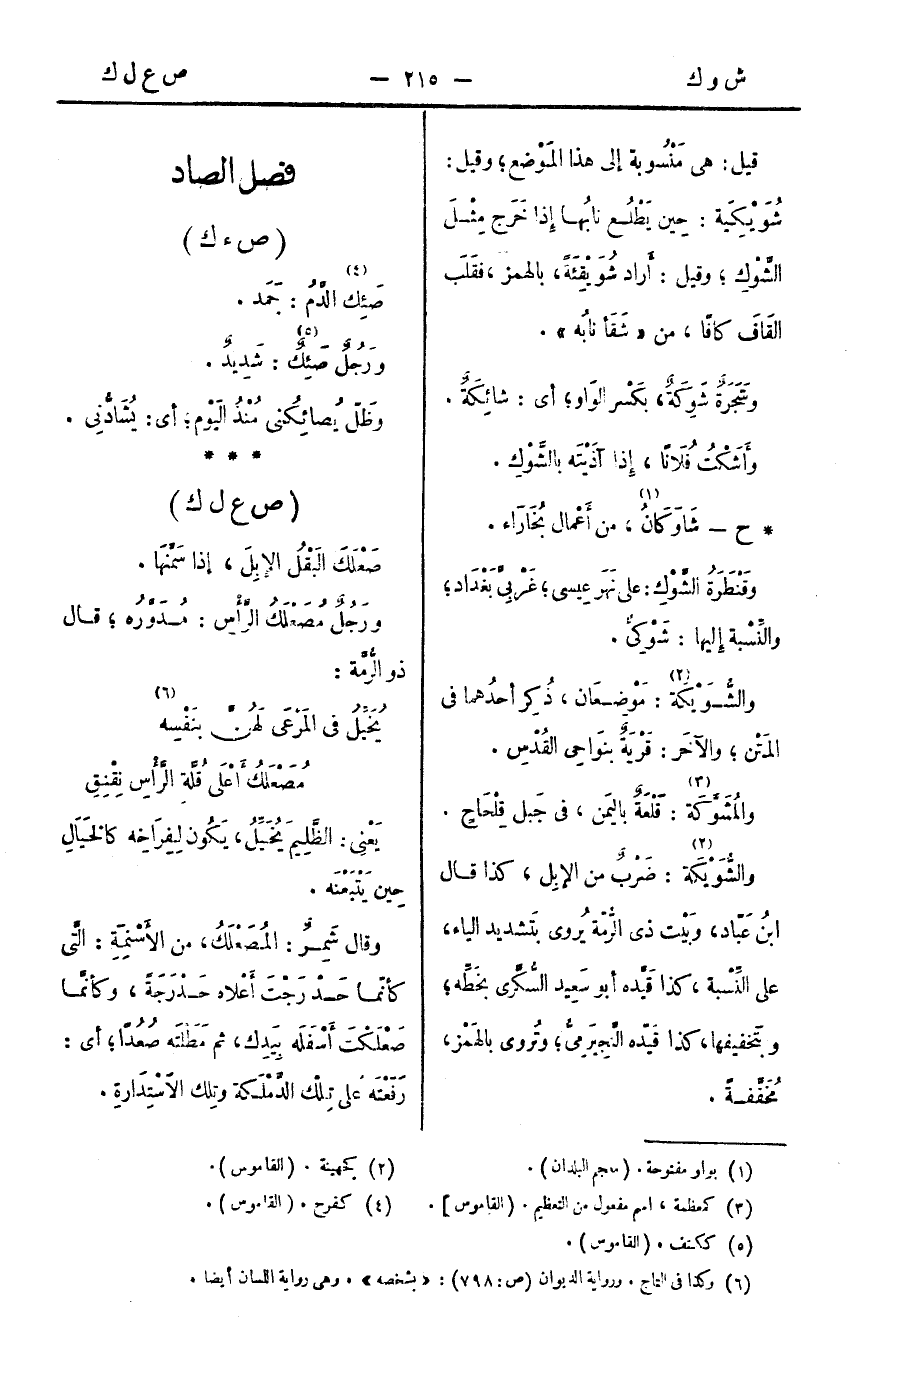 ش و ك
— ٢١٥ —
ص ع ل ك
قيل: هى مَنْسُوبة إلى هذا المَوْضع؛ وقيل:
شُوَيْكِيَة : حِين يَطْلُـع نابُهـا إذا خَرَج مِثْـلَ
الشَّوْكِ ؛ وقيل : أراد شُوَيْقِئَةً، بالهمز ،فقَلَب
القَافَ كافًا ، من « شَقَأ نابُه » .
وشَجَرَةٌ شَوِكَةٌ، بكَسر الوَاو؛ أى : شائِكَةٌ .
وأَشَكْتُ فُلَانًا ، إذا آذَيْتَه بالشَّوْكِ .
* ح — شَاوَكَانُ(١) ، من أَعْمال بُخَارَاء .
وقَنْطَرَةُ الشَّوْكِ: على نَهَر عِيسى؛ غَرْبِىَّ بَغْدَاد؛
والنِّسْبة إليها : شَوْكِىٌّ .
والشُّـوَيْكَة(٢) : مَوْضِـعَان ، ذُكِر أحدُهما فى
المَتْن ؛ والآخَر : قَرْيَةٌ بنَواحِى القُدْسِ .
والمُشَوَّكَة(٣) : قَلْعَةٌ باليَمن ، فى جَبل قِلْحَاحٍ .
والشُّوَيْكَة(٢) : ضَرْبٌ من الإبل ، كذا قـال
ابنُ عَبّاد، وبَيْت ذى الرُّمّة يُروى بتَشديد الياء،
على النِّسْبة ،كذا قَيَّده أبو سَعِيد السُّكَّرى بخَطِّه؛
وبتَخفيفها، كذا قَيّده النَّجِيرَمِىُّ؛ وتُروى بالهَمْز،
مُخَفَّفـةً .
فصل الصاد
( ص ء ك )
صَئِك(٤) الدَّمُ : جَمَد .
ورَجُلٌ صَئِكٌ(٥) : شَدِيدٌ .
وظَلّ يُصائِكُنى مُنْذُ اليَوْم؛ أى: يُشَادُّنِى .
* * *
( ص ع ل ك )
صَعْلَكَ البَقْلُ الإبِلَ ، إذا سَمَّنَها .
ورَجُلٌ مُصَعْلَكُ الرَّأْسِ : مُـدَوَّرُه ؛ قـال
ذو الرُّمَّة :
يُخَيِّلُ فى المَرْعَى لَهُنَّ بنَفْسِه(٦)
مُصَعْلَكُ أَعْلَى قُلَّةِ الرَّأْسِ نِقْنِقِ
يَعْنِى: الظَّلِيمَ يُخَيِّلُ، يَكُون لِفِرَاخِه كالخَيَالِ
حِين يَتْبَعْنَه .
وقال شَمِـرٌ : المُصَعْلَكُ، من الأَسْنِمَةِ : الَّتى
كأنّمـا حَـدْرَجْتَ أَعْلاه حَـدْرَجَةً ، وكأنَّمـا
صَعْلَكْتَ أَسْفَلَه بِيَدِك، ثم مَطَلْتَه صُعُدًا؛ أى :
رَفَعْتَه على تِلْك الدَّمْلَـكَة وتِلك الاسْتِدَارةِ .
(١) بواو مفتوحة . (معجم البلدان) .
(٢) كجهينة . (القاموس) .
(٣) كمعظمة ، اسم مفعول من التعظيم . (القاموس] .
(٤) كفرح . (القاموس) .
(٥) ككتف . (القاموس) .
(٦) وكذا فى التاج . ورواية الديوان (ص: ٧٩٨) : « بشخصه » . وهى رواية اللسان أيضا .